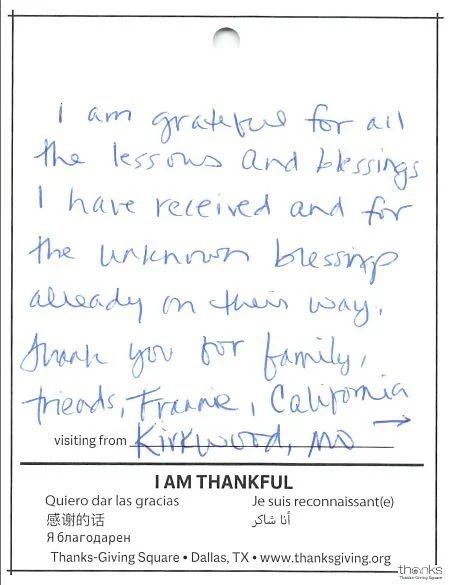 I am grateful for all
the lessons and blessings
I have received and for
the unknown blessings
already on their way.
Thank you for family,
friends, Frannie, California →
visiting from Kirkwood, MO
I AM THANKFUL
Quiero dar las gracias Je suis reconnaissant(e)
感谢的话 أنا شاكر
Я благодарен
Thanks-Giving Square • Dallas, TX • www.thanksgiving.org
thanks
Thanks-Giving Square